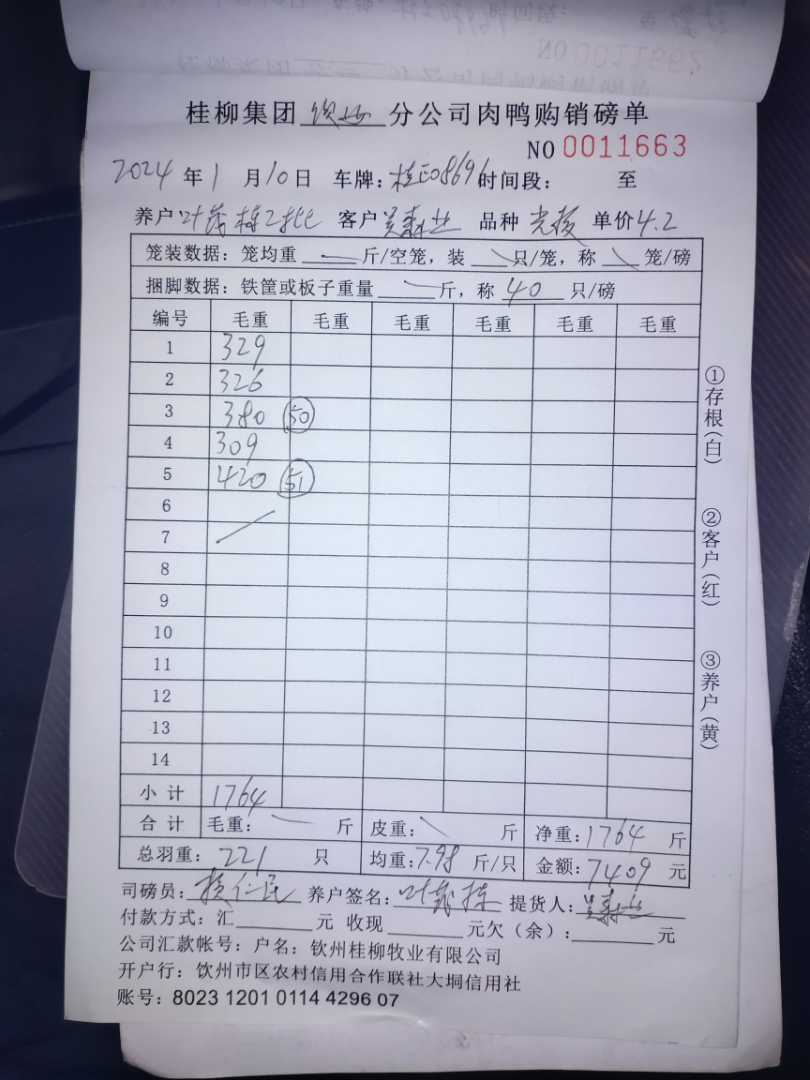 桂柳集团 钦州 分公司肉鸭购销磅单
NO 0011663
2024 年 1 月 10 日 车牌: 桂 08696 时间段: 至
养户 叶茂栋2批 客户 品种 单价 4.2
笼装数据: 笼均重 斤/空笼, 装 只/笼, 称 笼/磅
捆脚数据: 铁筐或板子重量 斤, 称 40 只/磅
编号 毛重 毛重 毛重 毛重 毛重 毛重
1 329
2 326
3 380 50
4 309
5 420 51
6
7
8
9
10
11
12
13
14
小计 1764
合计 毛重: 斤 皮重: 斤 净重: 1764 斤
总羽重: 221 只 均重: 7.98 斤/只 金额: 7409 元
司磅员: 养户签名: 叶茂栋 提货人:
付款方式: 汇 元 收现 元欠(余): 元
公司汇款帐号: 户名: 钦州桂柳牧业有限公司
开户行: 钦州市区农村信用合作联社大垌信用社
账号: 8023 1201 0114 4296 07
①存根(白)
②客户(红)
③养户(黄)